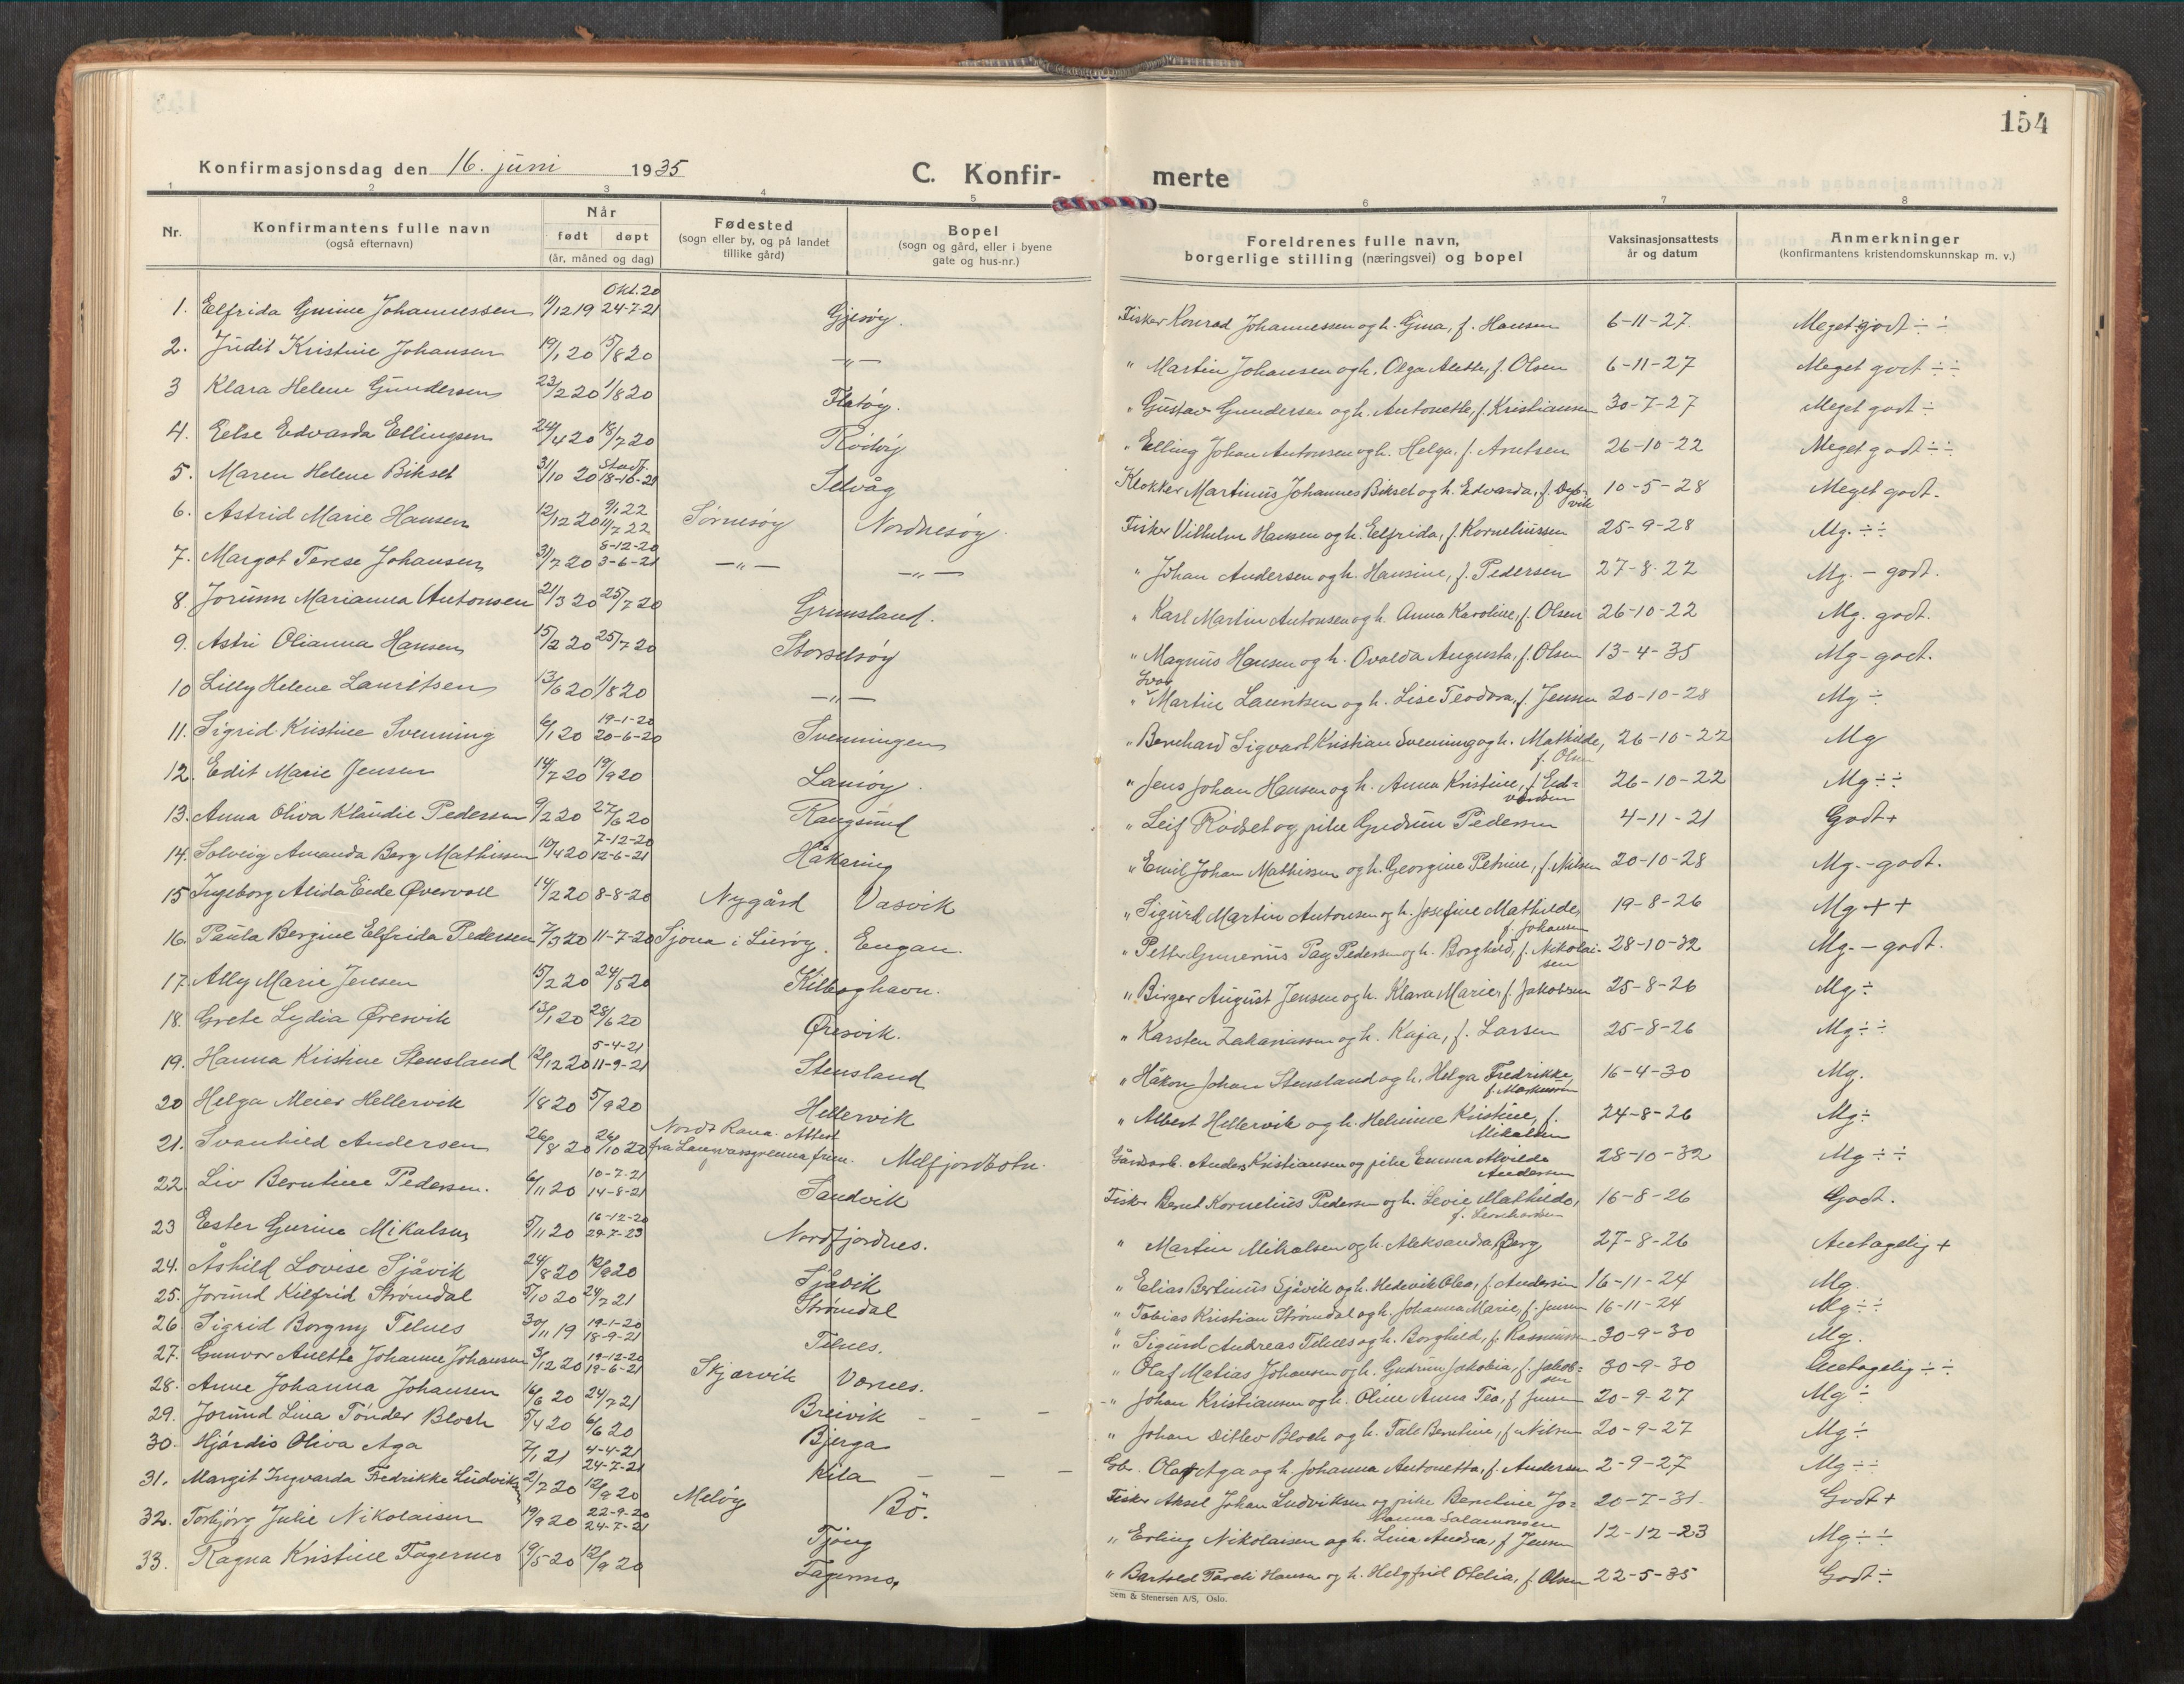 154
Konfirmasjonsdag den 16. juni 1935
C. Konfir- merte
1 2 3 4 5 6 7 8
Nr. Konfirmantens fulle navn (også efternavn) Når født døpt (år, måned og dag) Fødested (sogn eller by, og på landet tillike gård) Bopel (sogn og gård, eller i byene gate og hus-nr.) Foreldrenes fulle navn, borgerlige stilling (næringsvei) og bopel Vaksinasjonsattests år og datum Anmerkninger (konfirmantens kristendomskunnskap m. v.)
1. Elfrida Gurine Johannessen 11/12 19 Okt. 20 24-7-21 Gjesøy. Fisker Konrad Johannessen og h. Gina, f. Hansen 6-11-27 Meget godt ÷ ÷
2. Judit Kristine Johansen 19/1 20 15/8 20 —"— " Martin Johansen og h. Olga Alette, f. Olsen 6-11-27 Meget godt ÷÷
3 Klara Helene Gundersen 23/2 20 1/8 20 Flatøy. " Gustav Gundersen og h. Antonette, f. Kristiansen 30-7-27 Meget godt ÷
4. Else Edvarda Ellingsen 24/4 20 18/7 20 Rödöy " Elling Johan Antonsen og h. Helga, f. Arntsen 26-10-22 Meget godt ÷÷
5. Maren Helene Bikset 31/10 20 18-10-21 Selvåg Klokker Martinus Johannes Bikset og h. Edvarda, f. Dybvik 10-5-28 Meget godt.
6. Astrid Marie Hansen 12/12 20 9/1 22 11/7 22 Sørnesøy Nordnesøy. Fisker Vilhelm Hansen og h. Elfrida, f. Korneliussen 25-9-28 Mg. ÷÷
7. Margot Terese Johansen 31/7 20 8-12-20 3-6-21 —"— —"— " Johan Andersen og h. Hansine, f. Pedersen 27-8-22 Mg. - godt.
8. Jorunn Marianna Antonsen 21/3 20 25/7 20 Grimsland. " Karl Martin Antonsen og h. Anna Karoline, f. Olsen 26-10-22 Mg. godt.
9. Astri Olianna Hansen 15/2 20 25/7 20 Storselsøy " Magnus Hansen og h. Ovalda Augusta, f. Olsen 13-4-35 Mg - godt.
10 Lilly Helene Lauritsen 13/6 20 1/8 20 —"— " Martin Lauritsen og h. Lise Teodora, f. Jensen 20-10-28 Mg ÷
11. Sigrid Kristine Svenning 6/1 20 19-1-20 20-6-20 Svenningen " Bernhard Sigvart Kristian Svenning og h. Mathilde, f. Olsen 26-10-22 Mg
12. Edit Marie Jensen 14/7 20 19/9 20 Lamøy. " Jens Johan Hansen og h. Anna Kristine, f. Edvardsen 26-10-22 Mg ÷÷
13. Anna Oliva Klaudie Pedersen 9/2 20 27/6 20 Rangsund " Leif Rödset og pike Gudrun Pedersen 4-11-21 Godt +
14. Solveig Amanda Berg Mathissen 10/4 20 7-12-20 12-6-21 Håkaring " Emil Johan Mathissen og h. Georgine Petrine, f. Nilsen 20-10-28 Mg. - godt.
15 Ingeborg Alida Eide Øvervoll 14/2 20 8-8-20 Nygård Vasvik " Sigurd Martin Antonsen og h. Josefine Mathilde, f. Johansen 19-8-26 Mg ++
16. Paula Bergine Elfrida Pedersen 7/3 20 11-7-20 Sjona i Lurøy. Engan. " Petter Gunerius Pay Pedersen og h. Borghild, f. Nikolaisen 28-10-32 Mg. - godt.
17. Ally Marie Jensen 15/2 20 24/5 20 Kilboghavn. " Birger August Jensen og h. Klara Marie, f. Jakobsen 25-8-26 Mg ÷
18. Grete Lydia Øresvik 13/1 20 28/6 20 Øresvik. " Karsten Zakariassen og h. Kaja, f. Larsen 25-8-26 Mg ÷÷
19. Hanna Kristine Stensland 12/12 20 5-4-21 11-9-21 Stensland " Håkon Johan Stensland og h. Helga Fredrikke, f. Markussen 16-4-30 Mg.
20 Helga Meier Hellervik 1/8 20 5/9 20 Hellervik " Albert Hellervik og h. Helmine Kristine, f. Mikalsen 24-8-26 Mg ÷
21. Svanhild Andersen 26/8 20 26/10 20 Nord Rana. Attest fra Melfjordbotn. Gårdarb. Anders Kristiansen og pike Emma Alvilde Andersen 28-10-32 Mg ÷÷
22. Liv Berntine Pedersen. 6/11 20 10-7-21 14-8-21 Sandvik Fisker Bernt Kornelius Pedersen og h. Levie Mathilde, f. 16-8-26 Godt.
23 Ester Gurine Mikalsen 5/11 20 16-12-20 29-7-23 Nordfjordnes. " Martin Mikalsen og h. Aleksanda Berg 27-8-26 Antagelig +
24. Åshild Lovise Sjåvik 24/8 20 12/9 20 Sjåvik " Elias Bertinus Sjåvik og h. Hedevik Olea, f. Andersen 16-11-24 Mg.
25. Jorund Kilfrid Strømdal 5/10 20 24/7 21 Strømdal " Tobias Kristian Strømdal og h. Johanna Marie, f. Jensen 16-11-24 Mg ÷÷
26 Sigrid Borgny Telnes 30/11 19 19-1-20 18-9-21 Telnes. " Sigurd Andreas Telnes og h. Borghild, f. Rasmussen 30-9-30 Mg.
27. Gunvor Anette Johanne Johansen 3/12 20 19-12-20 19-6-21 Skjærvik Værnes. " Olaf Matias Johansen og h. Gudrun Jakobia, f. Jakobsen 30-9-30 Antagelig ÷÷
28. Anne Johanna Johansen 16/6 20 24/7 21 Breivik - - - " Johan Kristiansen og h. Oline Anna Tea, f. Jensen 20-9-27 Mg ÷
29. Jorund Lina Tönder Bloch 5/4 20 6/6 20 Bjerga " Johan Ditlev Bloch og h. Tale Berntine, f. Nilsen 20-9-27 Mg ÷
30. Hjördis Oliva Aga 7/1 21 4-4-21 24-7-21 Kila - - - Gb. Olaf Aga og h. Johanna Antonetta, f. Andersen 2-9-27 Mg ÷÷
31. Margit Ingvarda Fredrikke Ludviksen 2/7 20 12/9 20 Meløy Bö. Fisker Aksel Johan Ludviksen og pike Berntine Johanna Salamonsen 20-7-31 Godt +
32. Torbjørg Julie Nikolaisen 19/9 20 22-9-20 24-7-21 Tjöng " Erling Nikolaisen og h. Lina Andrea, f. Jensen 12-12-23 Mg ÷÷
33. Ragna Kristine Fagermo 19/5 20 12/9 20 Fagermo, " Bartold Hansen og h. Helgfrid Otelia, f. Olsen 22-5-35 Godt ÷
Sem & Stenersen A/S, Oslo.